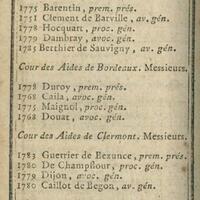 1775 Barentin, prem. prés.
1751 Clement de Barville, av. gén.
1778 Hocquart, proc. gén.
1779 Dambray, avoc. gén.
1785 Berthier de Sauvigny, av. gén.
Cour des Aides de Bordeaux. Messieurs.
1778 Duroy, prem. prés.
1768 Caila, avoc. gén.
1775 Maignol, proc. gén.
1768 Douat, avoc. gén.
Cour des Aides de Clermont. Messieurs.
1783 Guerrier de Bezance, prem. prés.
1780 De Champflour, proc. gén.
1779 Dijon, avoc. gén.
1780 Caillot de Begon, av. gén.